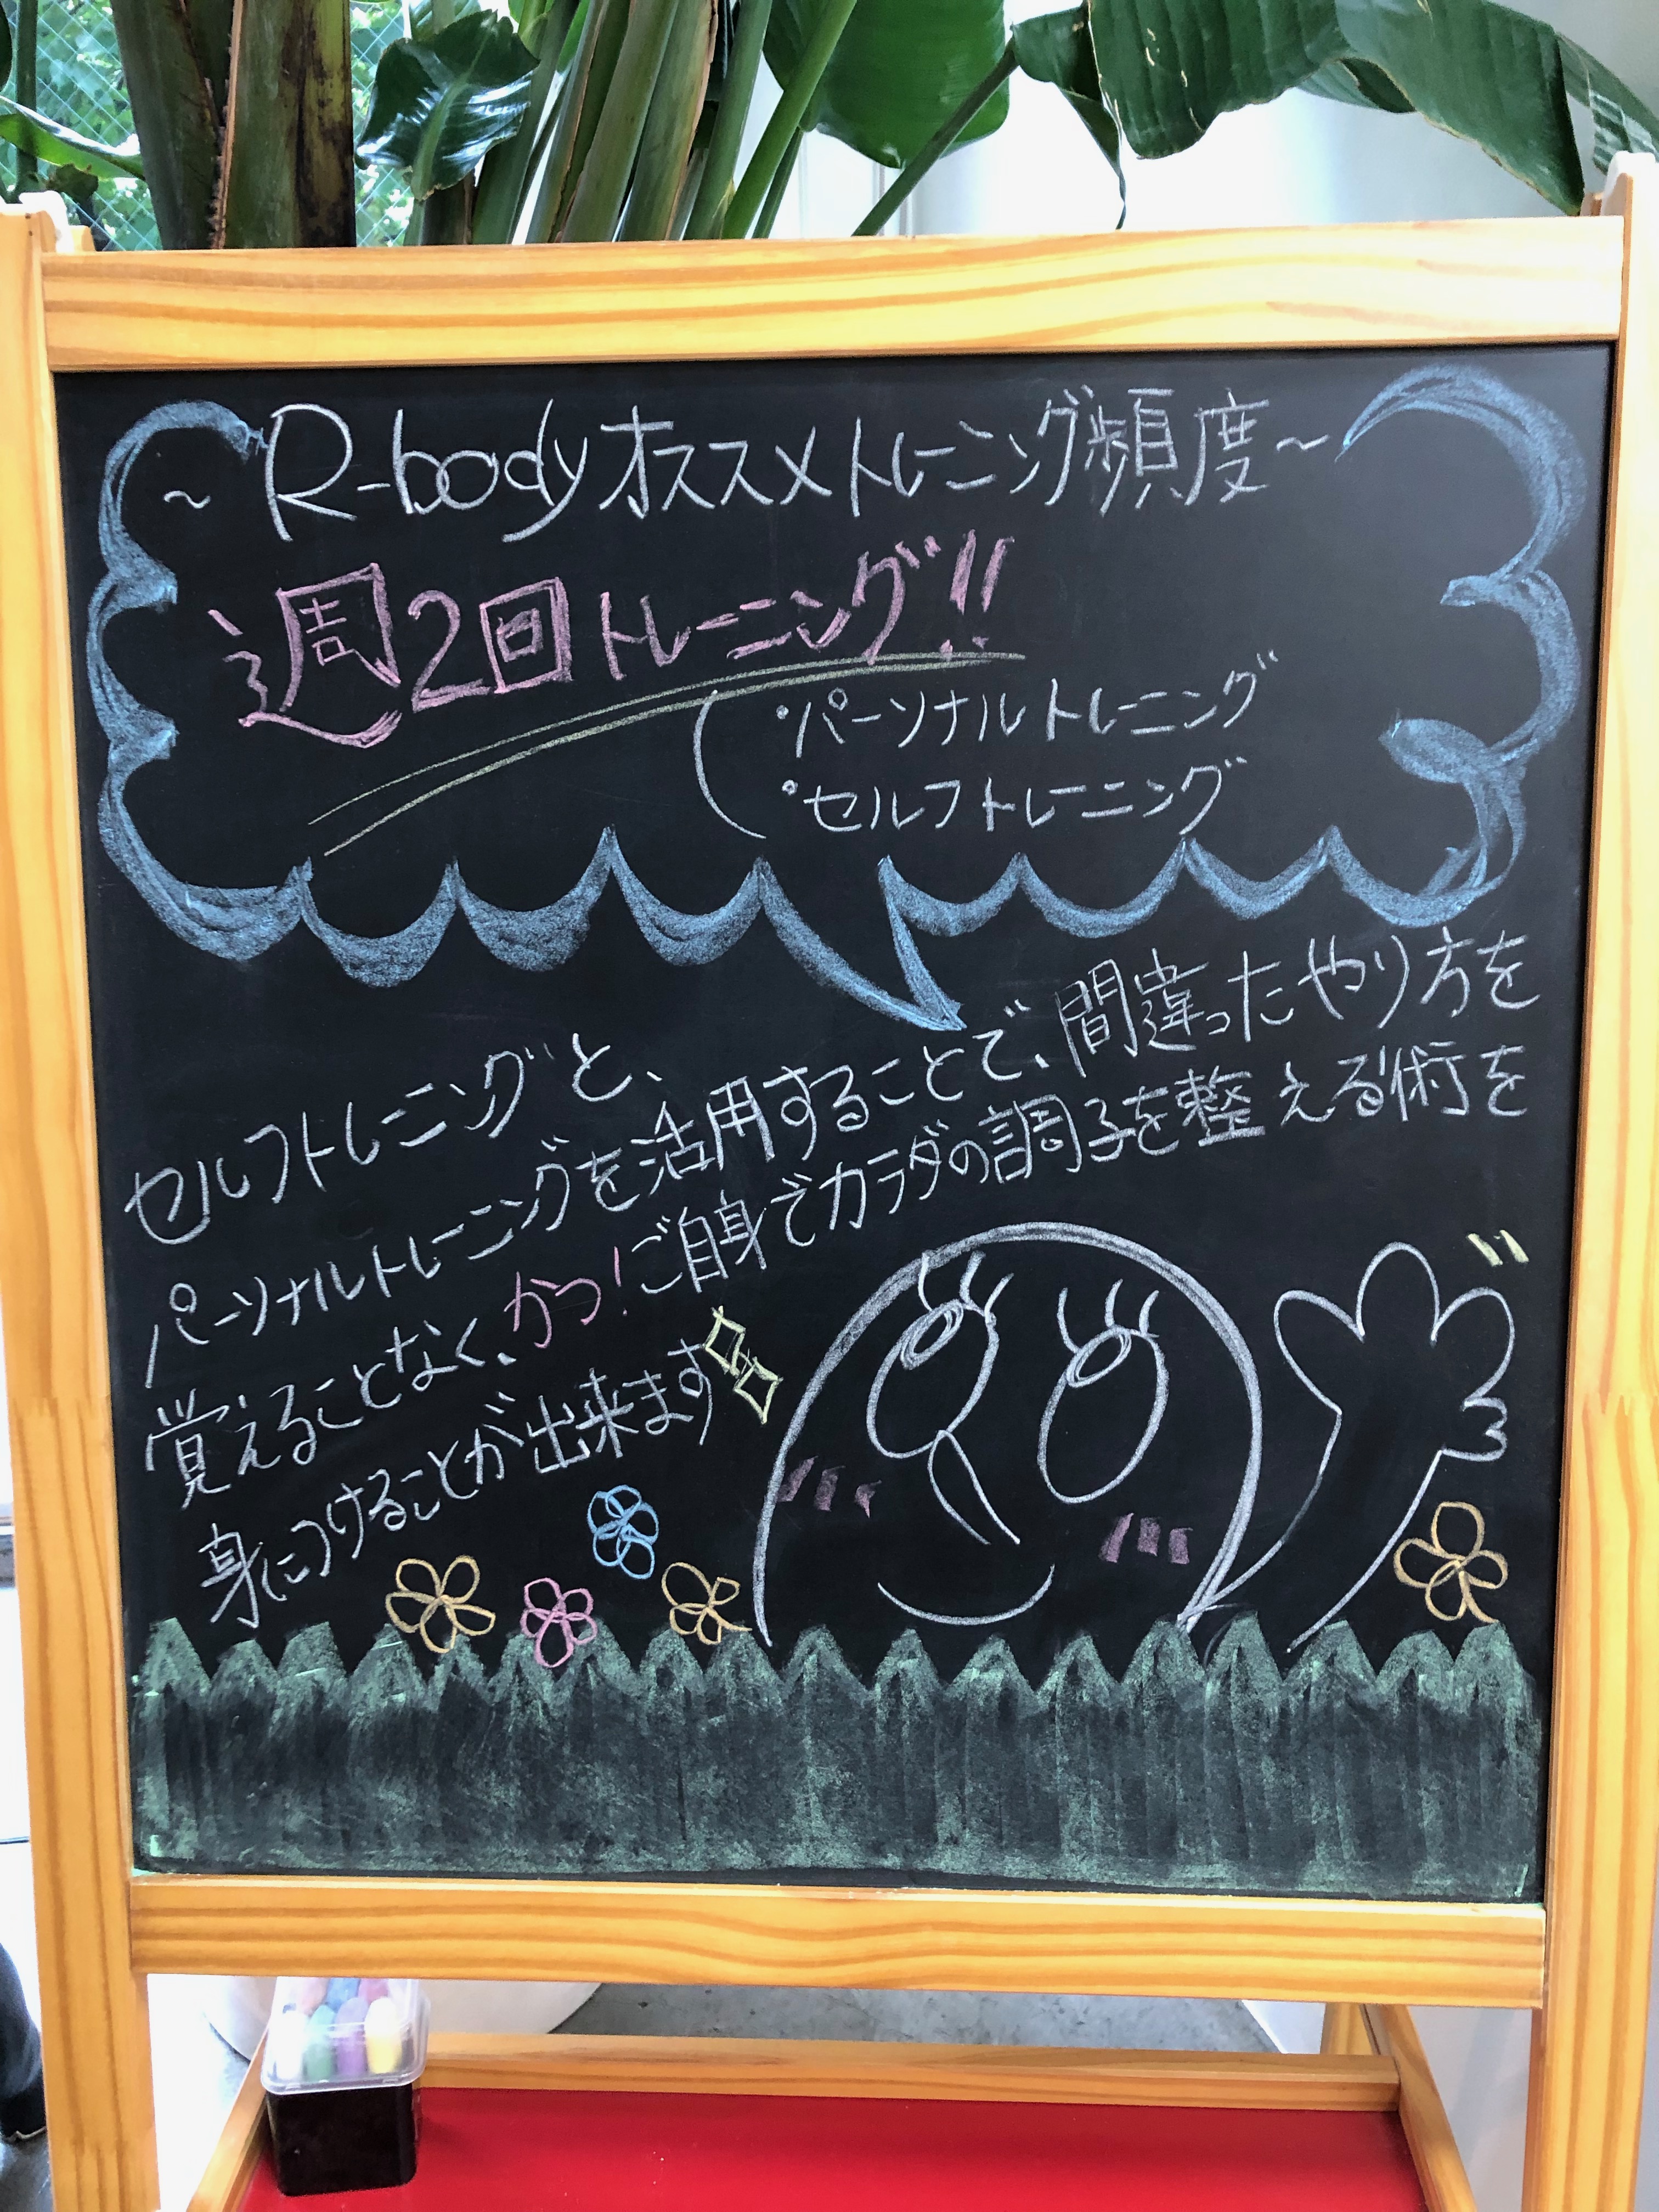 ～R-bodyオススメトレーニング頻度～
週2回トレーニング!!
・パーソナルトレーニング
・セルフトレーニング
セルフトレーニングと、
パーソナルトレーニングを活用することで、間違ったやり方を
覚えることなく、かつ!ご自身でカラダの調子を整える術を
身につけることが出来ます